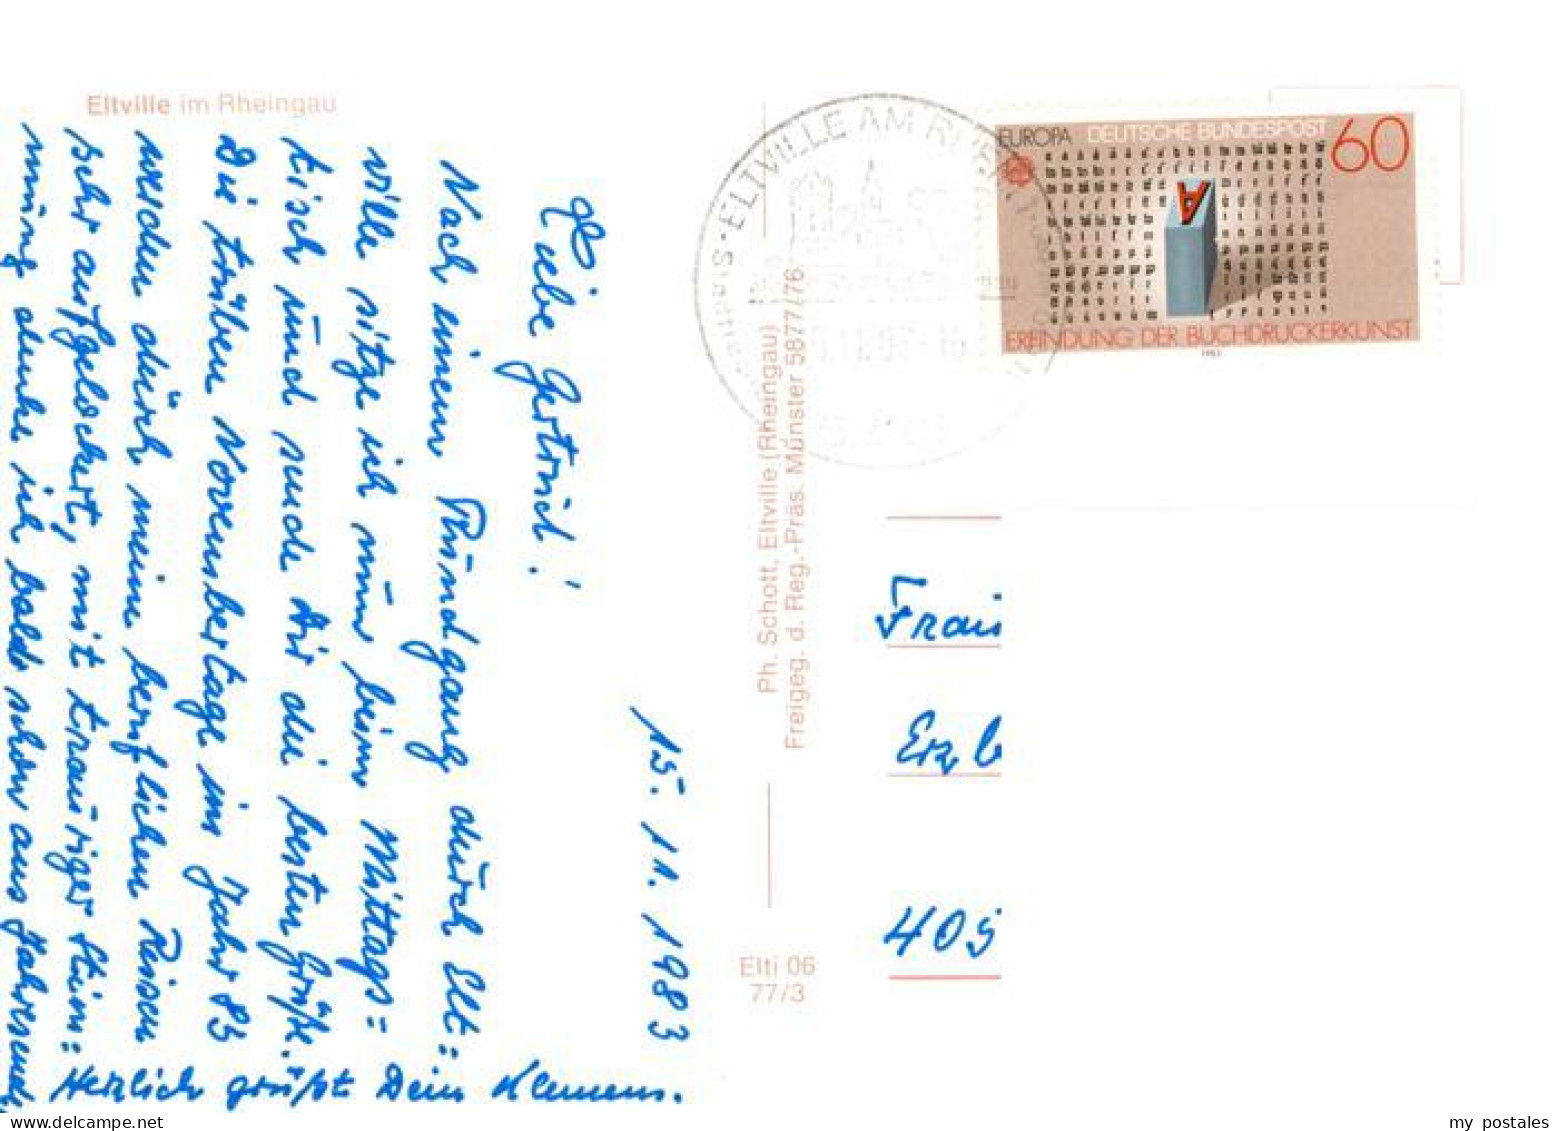 Eltville im Rheingau
15. 11. 1983
Liebe Gertrud!
Nach einem Rundgang durch Elt=
ville sitze ich nun beim Mittags=
tisch und sende Dir die besten Grüße.
Die trüben Novembertage im Jahr 83
werden durch meine beruflichen Reisen
sehr aufgelockert, mit trauriger Stim=
mung denke ich bald schon ans Jahresend
Herzlich grüßt Dein Klemens.
Ph. Schott, Eltville (Rheingau)
Freigeg. d. Reg.-Präs. Münster 5877/76
Elti 06
77/3
ELTVILLE AM RHEIN
EUROPA DEUTSCHE BUNDESPOST 60
A
ERFINDUNG DER BUCHDRUCKERKUNST
1983
Frau
Erzb
405
my postales